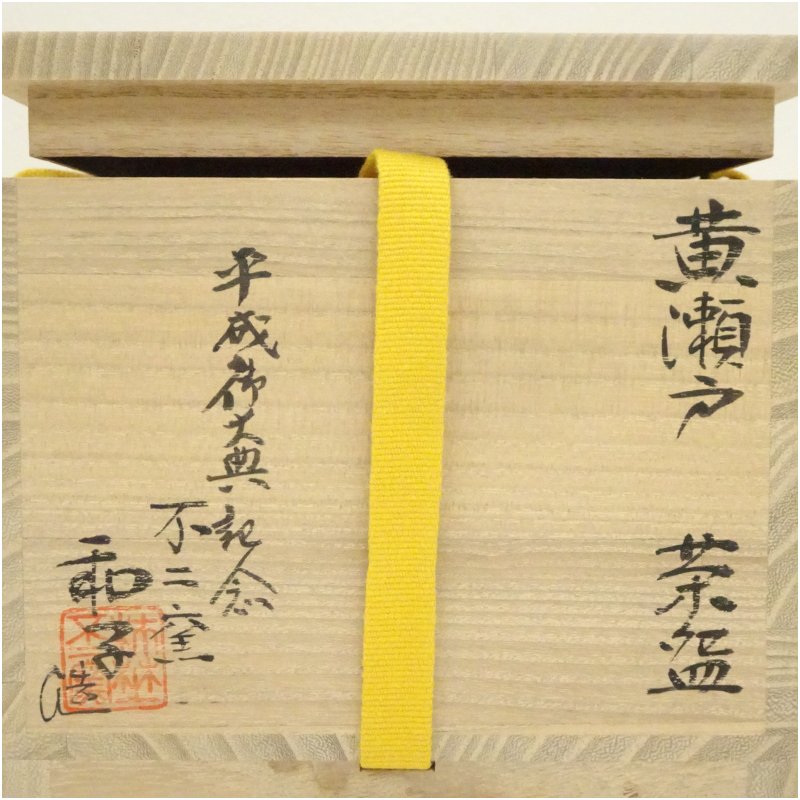 黄瀬戸 茶盌
平成御大典記念
不二窯
和子造